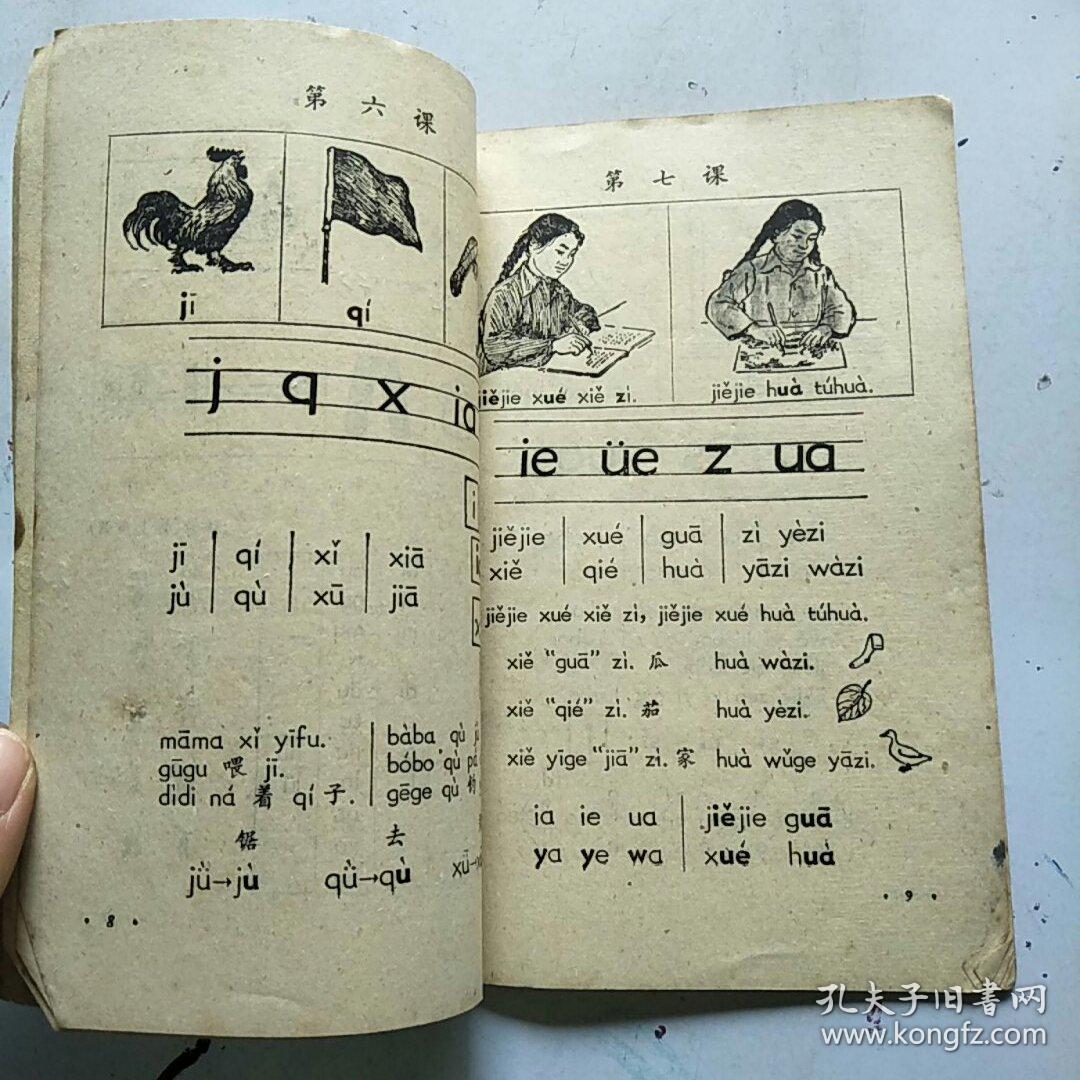 第六课
jī qí
j q x ia
i
jī qí xǐ xiā
jù qù xū jiā
māma xǐ yīfu.
gūgu 喂 jī.
dìdi ná 着 qí 子.
bàba qù
bóbo qù
gēge qù
锯 去
jǜ→jù qǜ→qù xǖ→
·8·
第七课
jiějie xué xiě zì. jiějie huà túhuà.
ie üe z ua
jiějie xué guā zì yèzi
xiě qié huà yāzi wàzi
jiějie xué xiě zì, jiějie xué huà túhuà.
xiě "guā" zì. 瓜 huà wàzi.
xiě "qié" zì. 茄 huà yèzi.
xiě yīge "jiā" zì. 家 huà wǔge yāzi.
ia ie ua jiějie guā
ya ye wa xué huà
·9·
孔夫子旧书网
www.kongfz.com